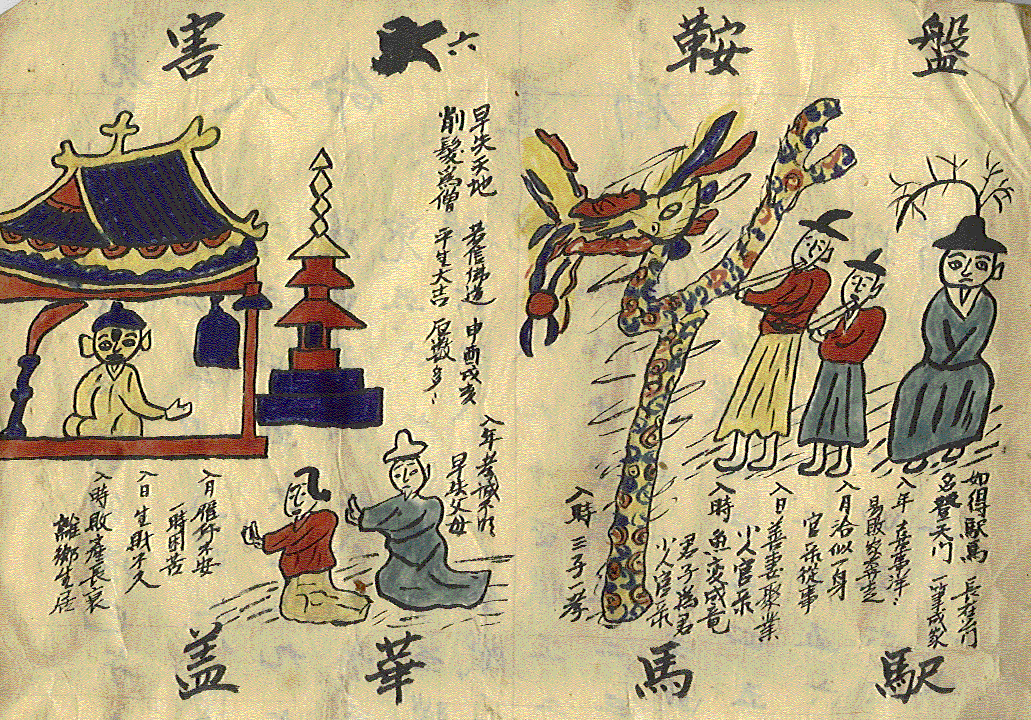 盤鞍
如得駅馬
多登天門 一筆成家
入年
易敗家奔走
入月洽似一身
官示從事
入日善妻聚業
少人官示
入時魚変成竜
君子為君
少人官示
入時 三子孝
駅馬
六害
早失天地 若信佛道 申酉戌亥
削髮為僧 平生大吉 厄數多
入年孝誠不明
早失父母
入月雁行不安
一時困苦
入日生財不久
入時敗產長哀
離鄉生居
華盖